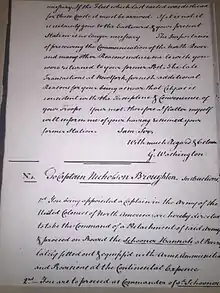 unnecessary. If the Fleet which last sailed was destined
for these Coasts it must be arrived. If it does not it
is certain if you to the Eastward & your present
Station is no longer necessary. The Importance
of preserving the Communication of the North River
and many other Reasons induce me to wish you
were returned to your former Post. The late
Transactions at New York furnish additional
Reasons for your being as near that City as is
consistent with the Discipline & Conveniency of
your Troops. Your next therefore I flatter myself
will inform me of your having resumed your
former Station. I am Sir
With much Regard & Esteem
G. Washington
To Captain Nicholson Broughton. Instructions,
1st You being appointed a Captain in the Army of the
United Colonies of North America are hereby directed
to take the Command of a Detachment of said Army
& proceed on Board the Schooner Hannah at Beverly
lately fitted out & equipp'd with Arms Ammunition
and Provisions at the Continental Expence
2nd You are to proceed as Commander of sd Schooner